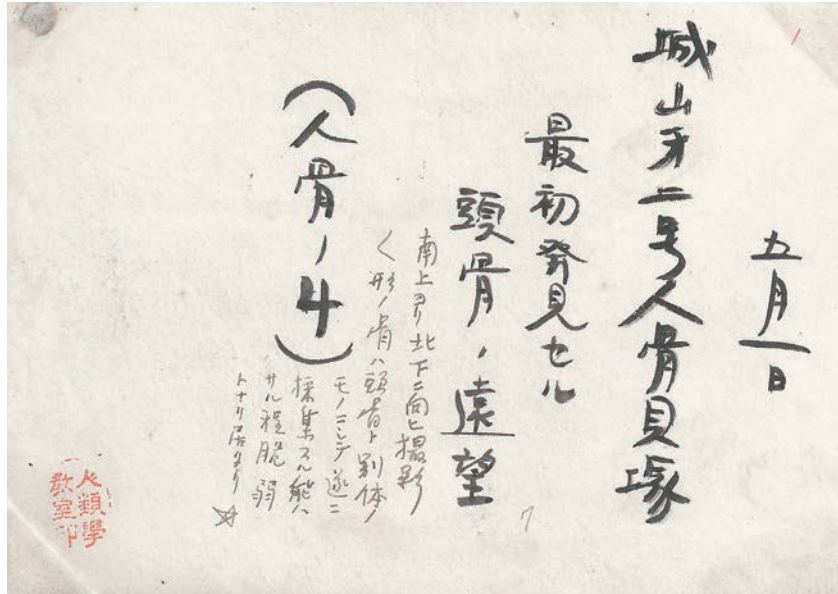 五月一日
城山第二号人骨貝塚
最初発見セル
頭骨ノ遠望
南上ヨリ北下ニ向ヒ撮影
く形ノ骨ハ頭骨ト別体ノ
モノニシテ遂ニ
採集スル能ハ
サル程脆弱
トナリ居タリ
(人骨ノ4)
人類學
教室印